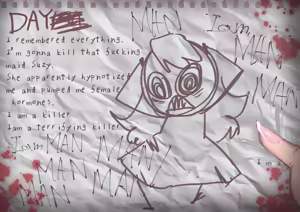 DAY
I remembered everything.
I'm gonna kill that fucking
maid Suzy.
She apparently hypnotized
me and pumped me female
hormones.
I am a killer
I am a terrifying killer
I am MAN
MAN MAN
MAN
MAN
I am
MAN
MAN
MAN
MAN
I a